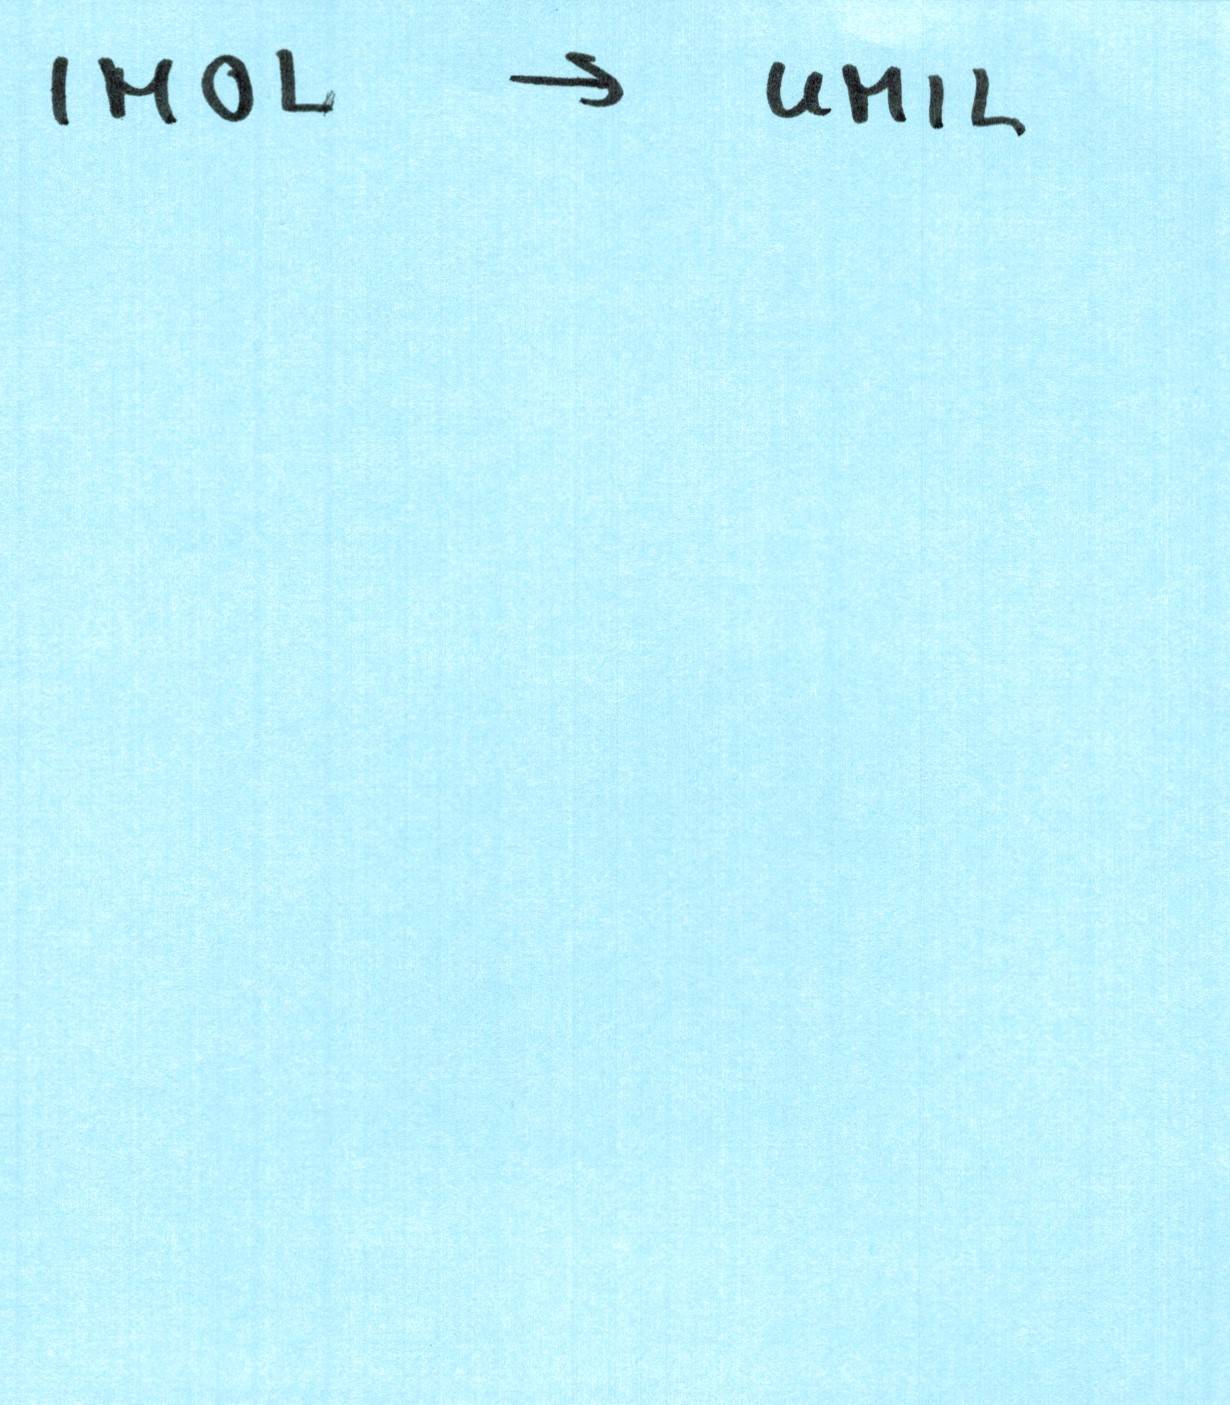 IMOL → UMIL